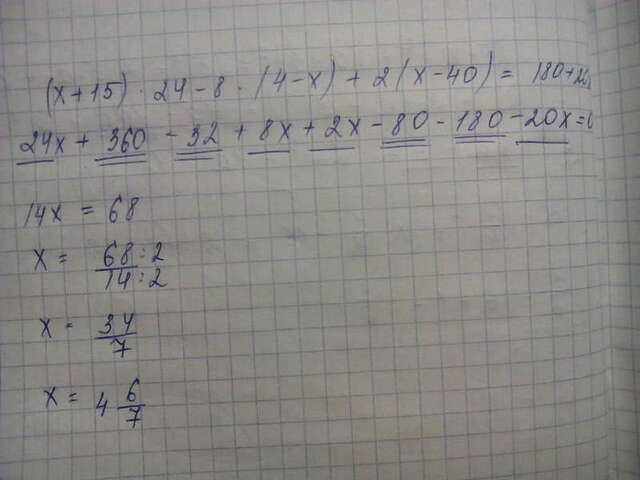 (x+15) · 24 - 8 · (4-x) + 2(x-40) = 180+
24x + 360 - 32 + 8x + 2x - 80 - 180 - 20x = 0
14x = 68
x = 68:2 / 14:2
x = 34/7
x = 4 6/7